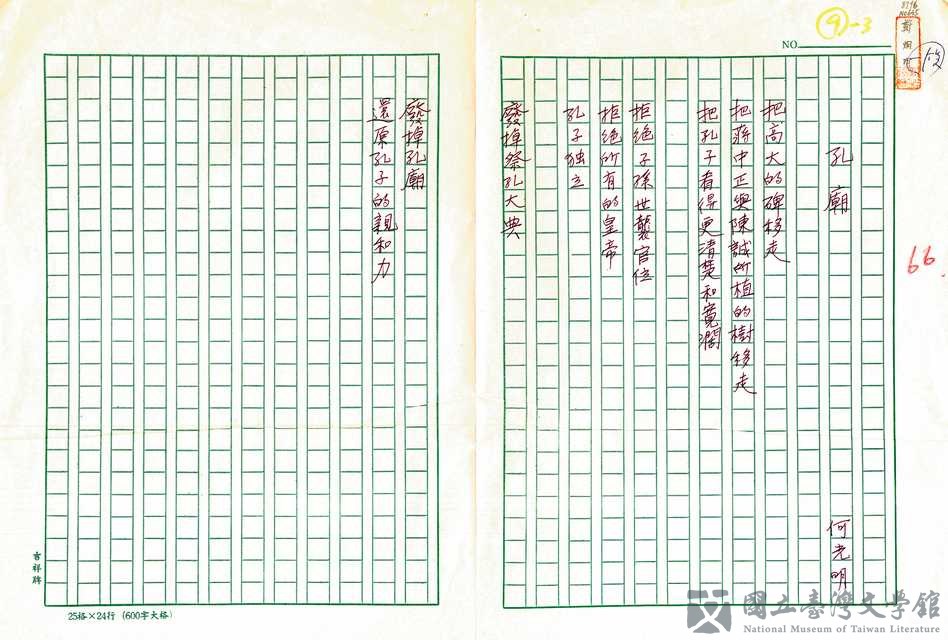 8396
⑨-3
NO.
孔廟
何光明
把高大的碑移走
把蔣中正與陳誠所植的樹移走
把孔子看得更清楚和寬濶
拒絕子孫世襲官位
拒絕所有的皇帝
孔子独立
廢掉祭孔大典
廢掉孔廟
還原孔子的親和力
66
吉祥牌
25格×24行(600字大格)
國立臺灣文學館
National Museum of Taiwan Literature